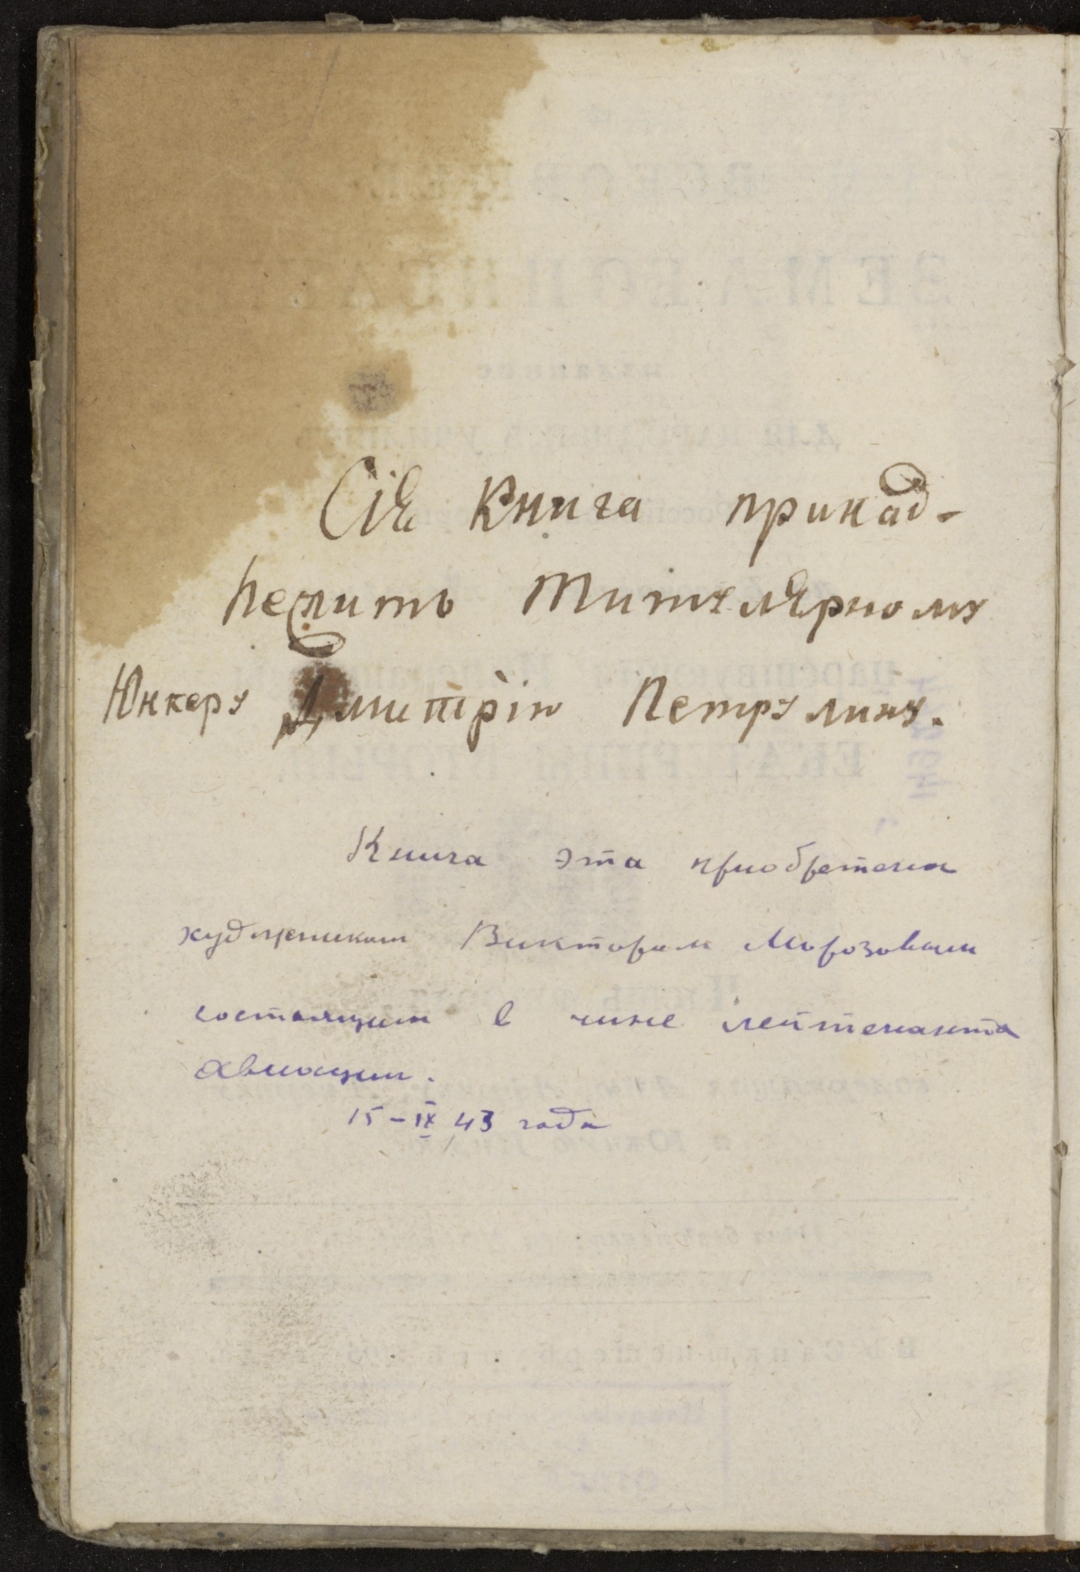 Сiя Книга принад-
лежить Титулярному
Юнкеру Дмитрiю Петрулину.
Книга эта приобретена
художником Виктором Морозовым
состоящим в чине лейтенанта
авиации.
15-IX 43 года